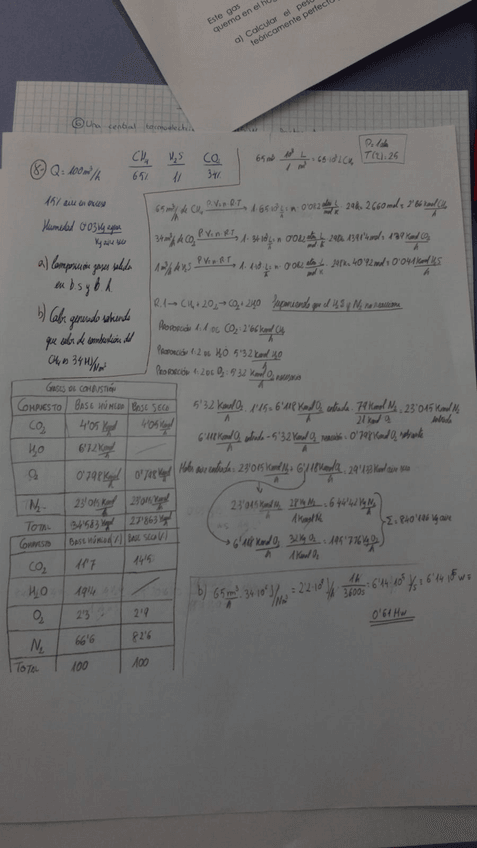 Este gas
quema en el ho
a) Calcular el peso
teóricamente perfecto
⑥ Una central termoeléctri
8. Q = 100 m³/h
CH₄ H₂S CO₂
65% 1% 34%
15% aire en exceso
Humedad 0'03 Kg agua
Kg aire seco
a) Composición gases salida
en b.s y b.h
b) Calor generado sabiendo
que calor de combustión del
CH₄ es 34 MJ/Nm³
P: 1 atm
T(ºC): 25
65 m³ · 10³ L / 1 m³ = 65·10³ L CH₄
65 m³/h de CH₄ P.V=n.R.T → 1·65·10³ L/h = n · 0'082 atm L/mol K · 298K = 2660 mol = 2'66 Kmol CH₄/h
34 m³/h de CO₂ P.V=n.R.T → 1·34·10³ L/h = n · 0'082 atm L/mol K · 298K = 1391'4 mol = 1'39 Kmol CO₂/h
1 m³/h de H₂S P.V=n.R.T → 1·1·10³ L/h = n · 0'082 atm L/mol K · 298K = 40'92 mol = 0'041 Kmol H₂S/h
R.1 → CH₄ + 2O₂ → CO₂ + 2H₂O Suponiendo que el H₂S y N₂ no reaccionan
Proporción 1:1 de CO₂: 2'66 Kmol CO₂/h
Proporción 1:2 de H₂O: 5'32 Kmol H₂O/h
Proporción 1:2 de O₂: 5'32 Kmol O₂/h necesarios
5'32 Kmol O₂/h · 1'15 = 6'118 Kmol O₂/h entrada · 79 Kmol N₂ / 21 Kmol O₂ = 23'015 Kmol N₂/h entrada
6'118 Kmol O₂/h entrada - 5'32 Kmol O₂/h reacción = 0'798 Kmol O₂/h sobrante
Moles aire entrada = 23'015 Kmol N₂/h + 6'118 Kmol O₂/h = 29'133 Kmol aire seco
23'015 Kmol N₂/h · 28 Kg N₂ / 1 Kmol N₂ = 644'42 Kg N₂/h
6'118 Kmol O₂/h · 32 Kg O₂ / 1 Kmol O₂ = 195'776 Kg O₂/h
Σ = 840'196 Kg aire
b) 65 m³/h · 34·10⁶ J/Nm³ = 2'2·10⁹ J/h · 1h/3600s = 6'14·10⁵ J/s = 6'14·10⁵ W =
0'61 MW
GASES DE COMBUSTIÓN
COMPUESTO BASE HÚMEDA BASE SECO
CO₂ 4'05 Kmol/h 4'05 Kmol/h
H₂O 6'72 Kmol/h
O₂ 0'798 Kmol/h 0'798 Kmol/h
N₂ 23'015 Kmol/h 23'015 Kmol/h
TOTAL 34'583 Kmol/h 27'863 Kmol/h
COMPUESTO BASE HÚMEDA(%) BASE SECO(%)
CO₂ 11'7 14'5
H₂O 19'4
O₂ 2'3 2'9
N₂ 66'6 82'6
TOTAL 100 100